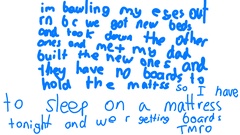 im bawling my eyes out
rn bc we got new beds
and took down the other
ones and me+ my dad
built the new ones and
they have no boards to
hold the matrss so I have
to sleep on a mattress
tonight and we r getting boards
TMRO